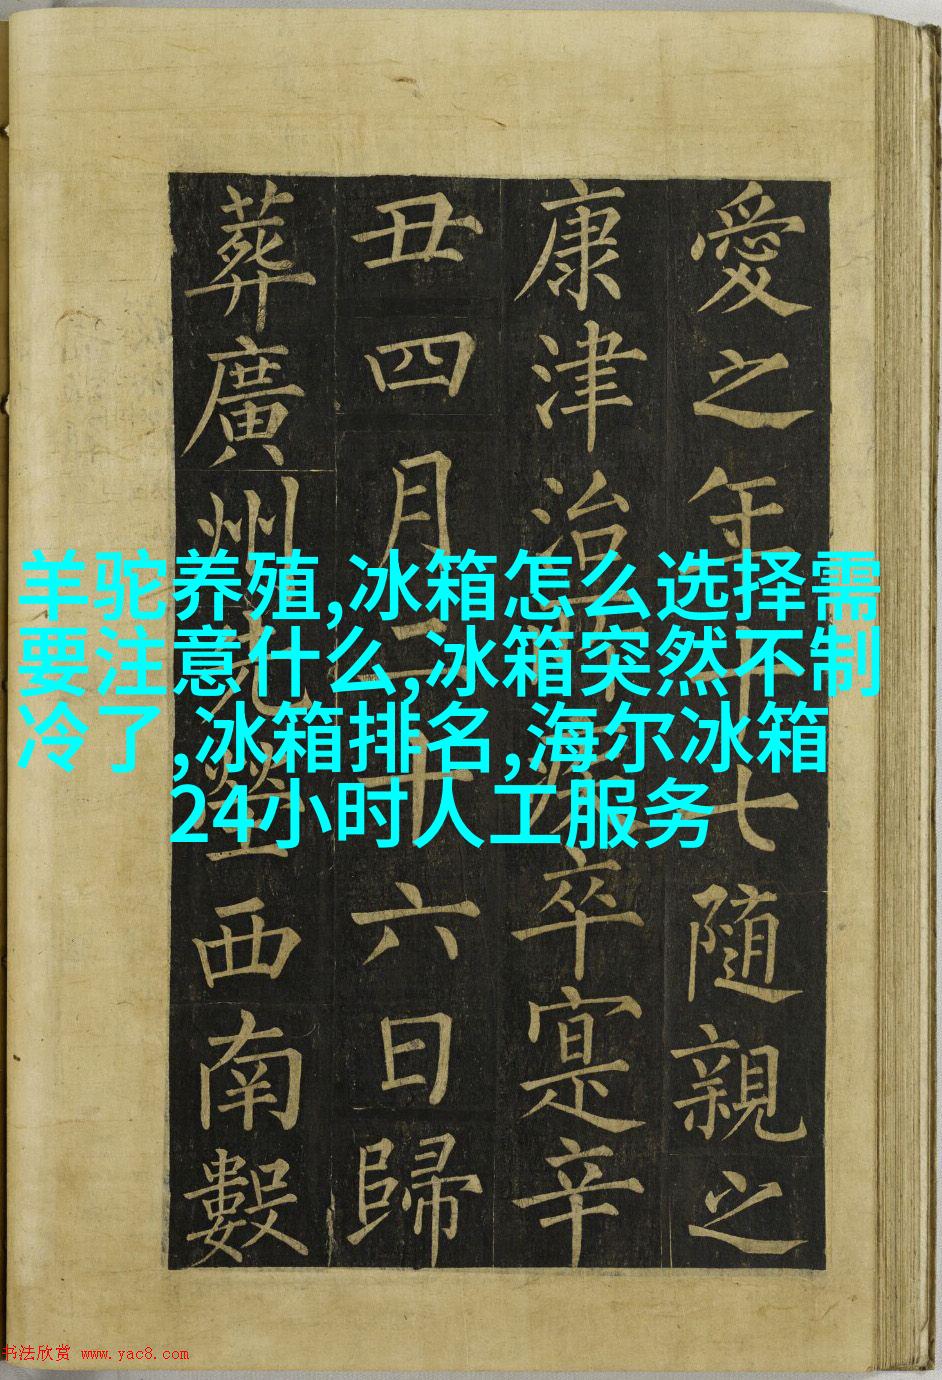 羊驼养殖,冰箱怎么选择需
要注意什么,冰箱突然不制
冷了,冰箱排名,海尔冰箱
24小时人工服务
愛之年十七隨親之
康津治卒寔辛
丑四月二十六日歸
葬廣州先塋西南數
书法欣赏 www.yac8.com